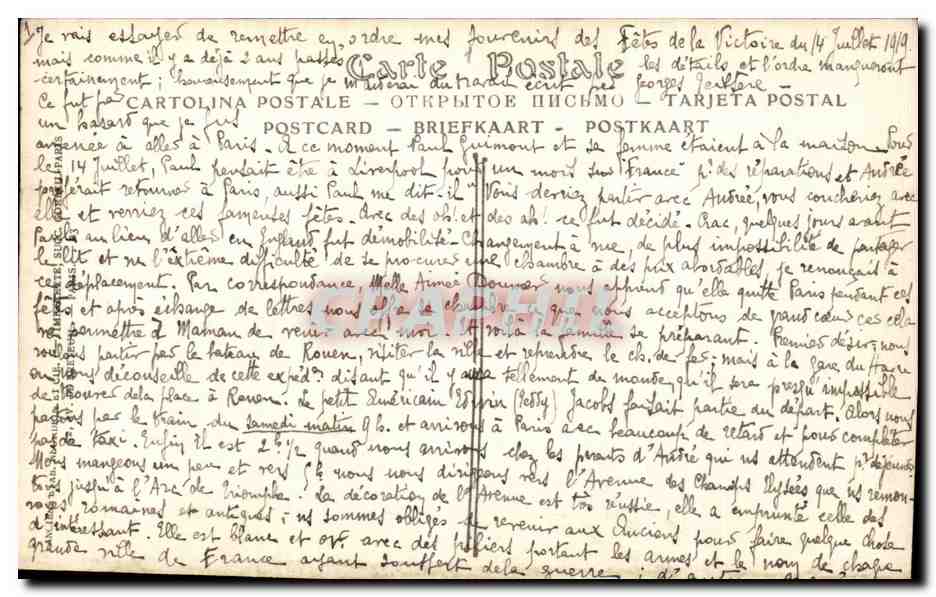 1
Je vais essayer de remettre en ordre mes souvenirs des Fêtes de la Victoire du 14 Juillet 1919.
mais comme il y a déjà 2 ans passés les détails et l'ordre manqueront
Carte Postale
certainement; heureusement que je du travail écrit par Georges
CARTOLINA POSTALE — ОТКРЫТОЕ ПИСЬМО — TARJETA POSTAL
Ce fut par
un hasard que je fus
POSTCARD — BRIEFKAART — POSTKAART
amenée à aller à Paris. A ce moment Paul Guimont et sa femme étaient à la maison. Pour
le 14 Juillet, Paul pensait être à Liverpool pour un mois sur "France" pr des réparations et Andrée
retourner à Paris, aussi Paul me dit-il "Vous devriez partir avec Andrée, vous coucheriez avec
elle et verriez ces fameuses fêtes. Avec des oh! et des ah! ce fut décidé. Crac, quelques jours avant
Paul au lieu d'aller en England fut démobilisé. Changement à vue, de plus impossibilité de partager
le lit et vu l'extrême difficulté de se procurer une chambre à des prix abordables, je renonçais à
ce déplacement. Par correspondance, Melle Aimée nous apprend qu'elle quitte Paris pendant ces
fêtes et après échange de lettres nous offre sa chambre que nous acceptons de grand cœur car cela
permettra à Maman de venir avec moi. Et voilà la famille se préparant. Premier désir, nous
voulons partir par le bateau de Rouen, visiter la ville et reprendre le ch. de fer; mais à la gare du Havre
on nous déconseille de cette expédon disant qu'il y aura tellement de monde qu'il sera presqu'impossible
de trouver de la place à Rouen. Le petit Américain Edwin (Teddy) Jacobs faisait partie du départ. Alors nous
partons par le train du samedi matin 9h. et arrivons à Paris avec beaucoup de retard et pour compléter
pas de taxi. Enfin il est 2h 1/2 quand nous arrivons chez les parents d'André qui ns attendent pr déjeuner
Nous mangeons un peu et vers 5h nous nous dirigeons vers l'Avenue des Champs Elysées que ns remon-
tons jusqu'à l'Arc de Triomphe. La décoration de l'Avenue est très réussie, elle a emprunté celle des
voies romaines et antiques; ns sommes obligés de revenir aux Anciens pour faire quelque chose
d'intéressant. Elle est blanc et or avec des piliers portant les armes et le nom de chaque
grande ville de France ayant souffert de la guerre;
CPAPHIL